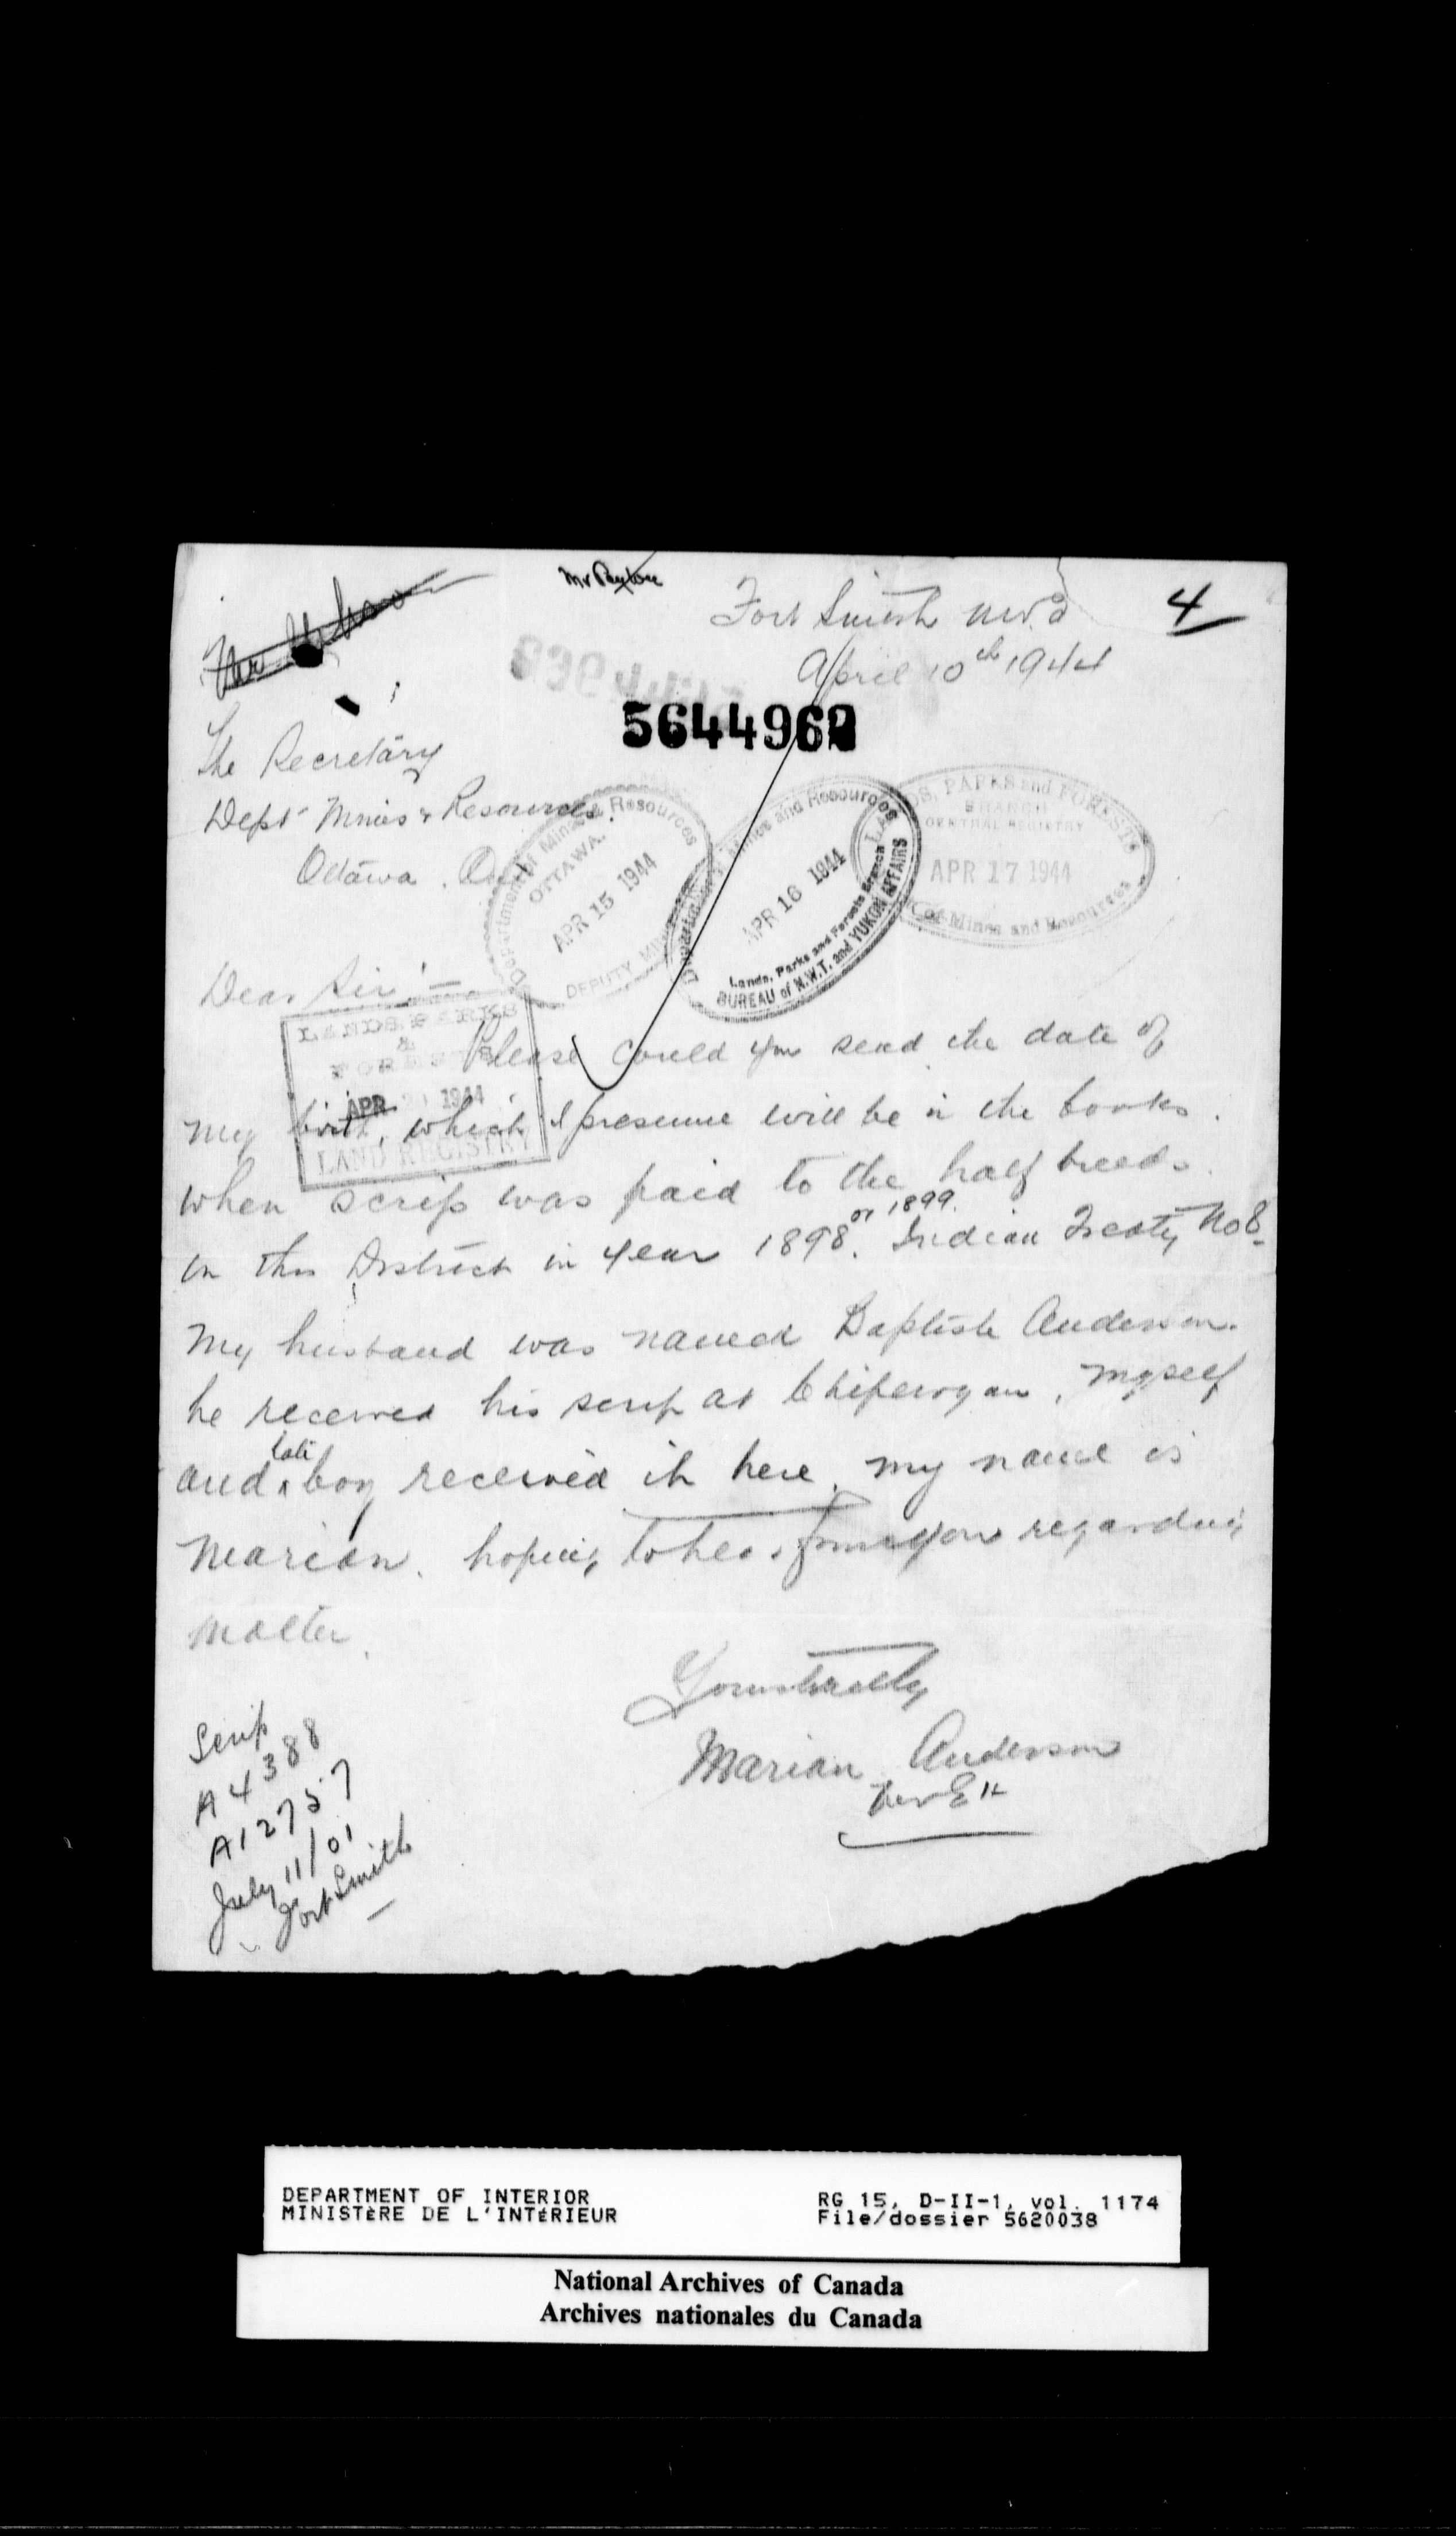 Fort Smith N.W.T
4
April 10th 1944
5644962
The Secretary
Dept Mines & Resources.
Ottawa. Ont
Department of Mines & Resources
OTTAWA.
APR 15 1944
DEPUTY MINISTER
Department of Mines and Resources
APR 16 1944
Lands, Parks and Forests Branch
BUREAU of N.W.T. and YUKON AFFAIRS
LANDS, PARKS and FORESTS
BRANCH
CENTRAL REGISTRY
APR 17 1944
of Mines and Resources
Dear Sir:—
LANDS, PARKS
&
FORESTS
APR 1944
LAND REGISTRY
Please could you send the date of
my birth, which I presume will be in the books.
when scrip was paid to the half breeds.
in this District in year 1898. or 1899. Indian Treaty No 8.
My husband was named Baptiste Anderson.
he received his scrip at Chipewyan, myself
and boy received it here. my name is
Marian. hoping to hear from you regarding
matter.
Yours truly
Marian Anderson
per
Scrip
A 4388
A12757
July 11/01
Fort Smith
DEPARTMENT OF INTERIOR
MINISTÈRE DE L'INTÉRIEUR
RG 15, D-II-1, vol. 1174
File/dossier 5620038
National Archives of Canada
Archives nationales du Canada